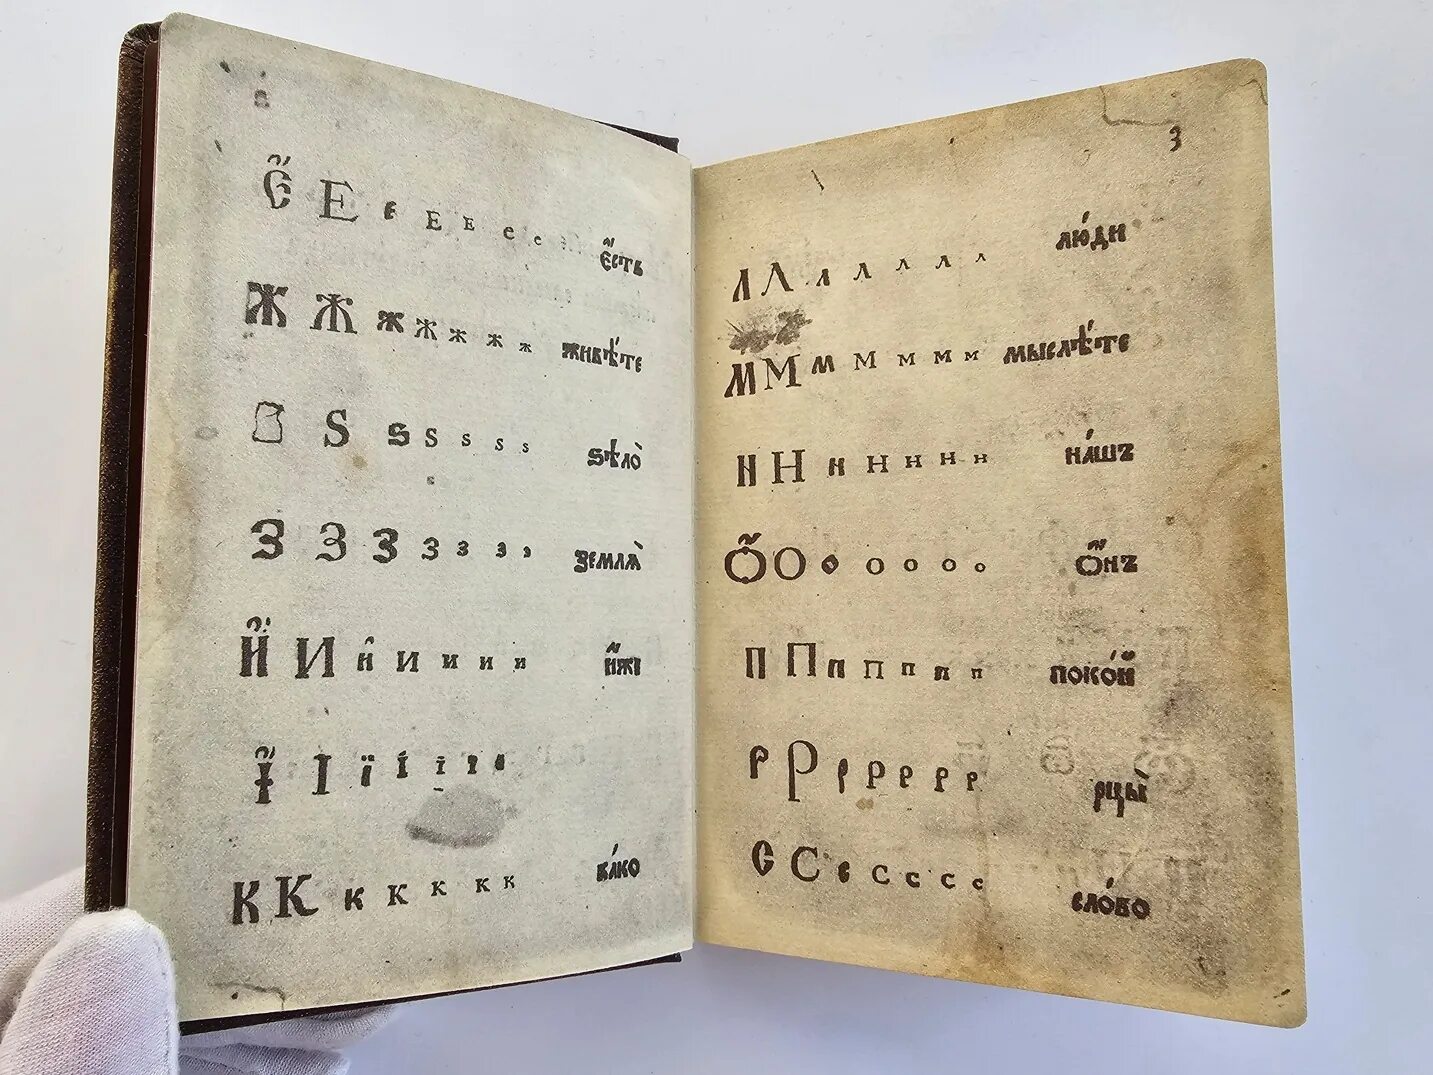 Є҆ Е є Е Е е е є҆́сть
Ж Ж ж ж ж ж ж живѣ́те
Ѕ ѕ ѕ ѕ ѕ ѕ ѕѣлѡ̀
З З З З з з з земля̀
И҆ И и И и и и и҆́жі
І҆ І ї і і і і
К К к К к к к ка́ко
3
Л Л л л л л л лю́ди
М М м М м м м мыслѣ́те
Н Н н н н н н на́шъ
Ѻ҆ О о о о о о ѻ҆́нъ
П П п П п п п поко́й
Р Р р р р р р рцы̀
С С с с с с с сло́во